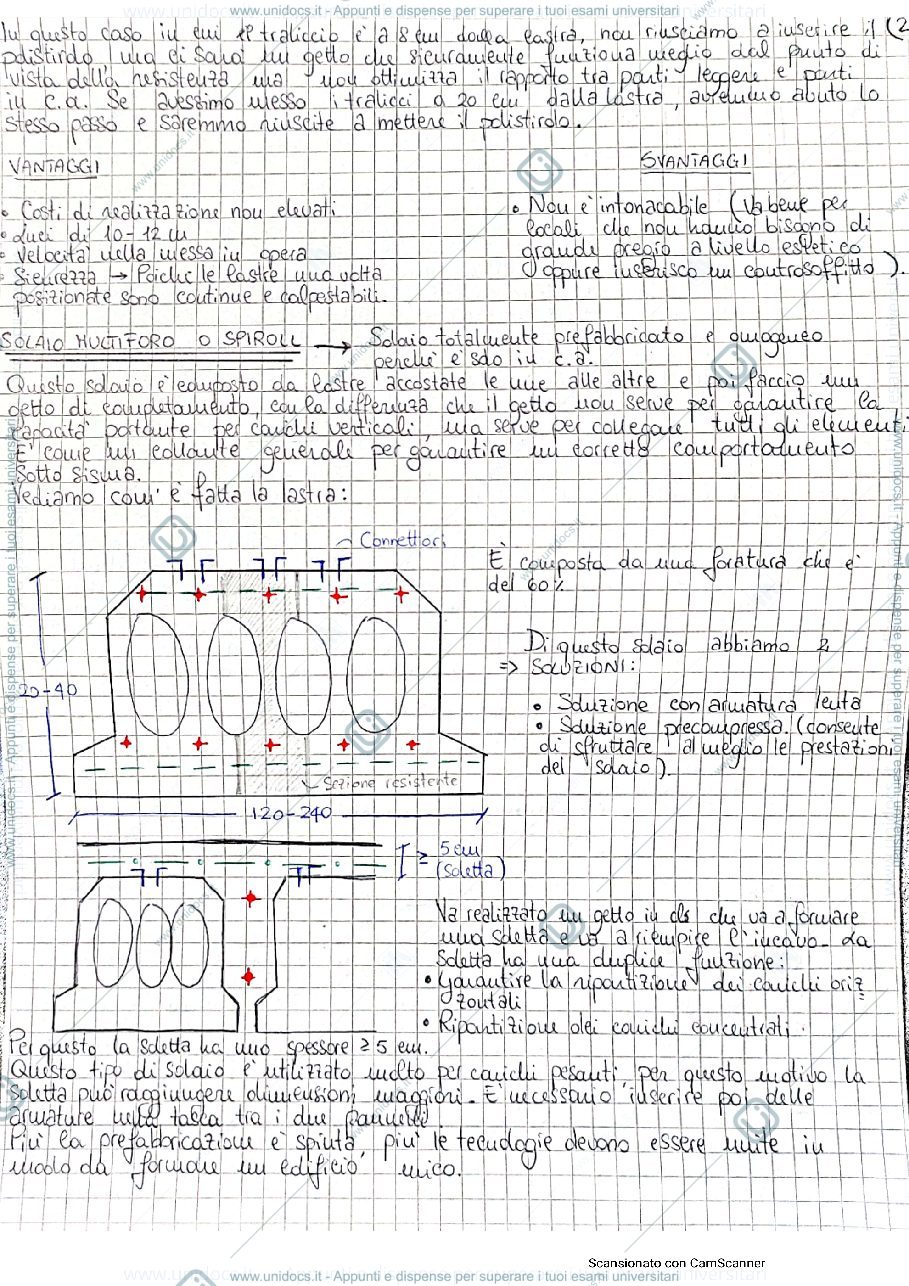 www.unidocs.it - Appunti e dispense per superare i tuoi esami universitari
In questo caso in cui il traliccio è a 8 cm dalla lastra, non riusciamo a inserire il (2
polistirolo, ma ci sarà un getto che sicuramente funziona meglio dal punto di
vista della resistenza ma non ottimizza il rapporto tra parti leggere e parti
in c.a. Se avessimo messo i tralicci a 20 cm dalla lastra, avremmo avuto lo
stesso passo e saremmo riuscite a mettere il polistirolo.
VANTAGGI
• Costi di realizzazione non elevati
• Luci di 10-12 m
• Velocità nella messa in opera
• Sicurezza → Poiché le lastre una volta
posizionate sono continue e calpestabili.
SVANTAGGI
• Non è intonacabile (Va bene per
locali che non hanno bisogno di
grande pregio a livello estetico
oppure inserisco un controsoffitto).
SOLAIO MULTIFORO O SPIROLL → Solaio totalmente prefabbricato e omogeneo
perché è solo in c.a.
Questo solaio è composto da lastre accostate le une alle altre e poi faccio un
getto di completamento, con la differenza che il getto non serve per garantire la
capacità portante per carichi verticali, ma serve per collegare tutti gli elementi
E' come un collante generale per garantire un corretto comportamento
sotto sisma.
Vediamo com' è fatta la lastra:
Connettori
È composta da una foratura che è
del 60%
20-40
Di questo solaio abbiamo 2
=> SOLUZIONI:
• Soluzione con armatura lenta
• Soluzione precompressa (consente
di sfruttare al meglio le prestazioni
del solaio).
Sezione resistente
120-240
≥ 5 cm
(Soletta)
Va realizzato un getto in cls che va a formare
una soletta e va a riempire l'incavo. La
soletta ha una duplice funzione:
• Garantire la ripartizione dei carichi oriz
zontali
• Ripartizione dei carichi concentrati.
Per questo la soletta ha uno spessore ≥ 5 cm.
Questo tipo di solaio è utilizzato molto per carichi pesanti, per questo motivo la
soletta può raggiungere dimensioni maggiori. È necessario inserire poi delle
armature nella tasca tra i due pannelli
Più la prefabbricazione è spinta, più le tecnologie devono essere unite in
modo da formare un edificio unico.
Scansionato con CamScanner
www.unidocs.it - Appunti e dispense per superare i tuoi esami universitari